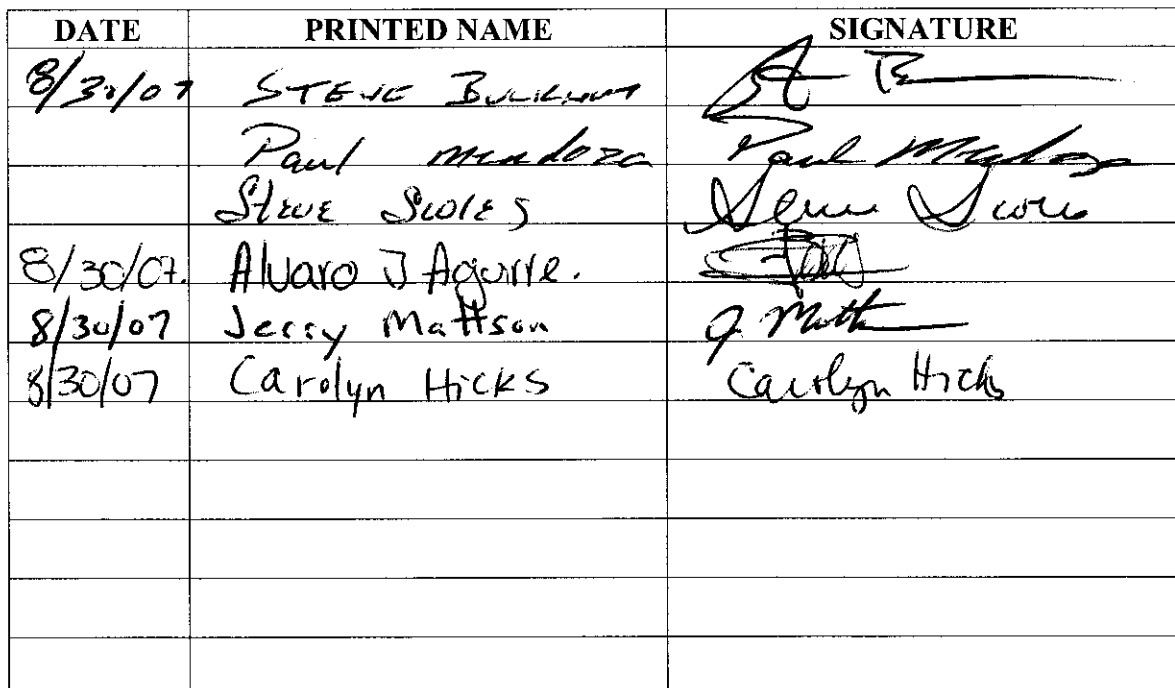 DATE PRINTED NAME SIGNATURE
8/30/07 STEVE
Paul Mendoza Paul Mendoza
Steve Scoles Steve Scoles
8/30/07. Alvaro J Aguirre.
8/30/07 Jerry Mattson J. Matt
8/30/07 Carolyn Hicks Carolyn Hicks